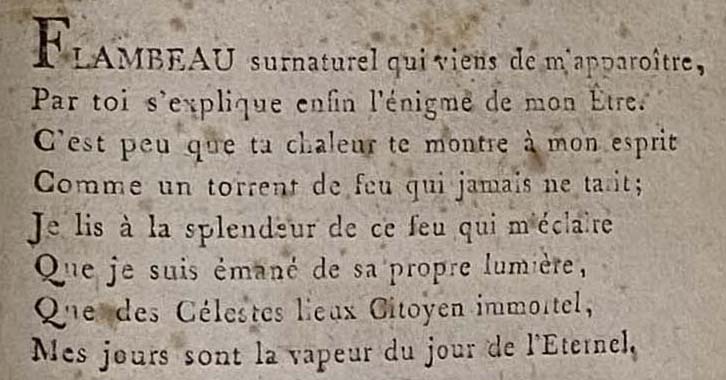 FLAMBEAU surnaturel qui viens de m'apparoître,
Par toi s'explique enfin l'énigme de mon Être.
C'est peu que ta chaleur te montre à mon esprit
Comme un torrent de feu qui jamais ne tarit;
Je lis à la splendeur de ce feu qui m'éclaire
Que je suis émané de sa propre lumière,
Que des Célestes lieux Citoyen immortel,
Mes jours sont la vapeur du jour de l'Eternel.